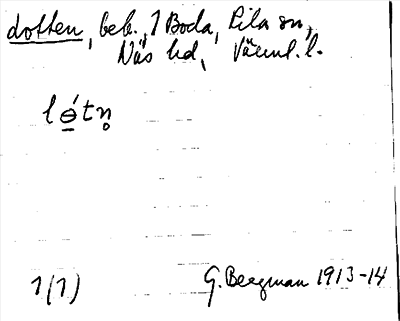 dotten, beb., i Boda, Lila sn,
Näs hd, Värml. l.
lɵ́tn̥
1(1)
G. Bergman 1913-14